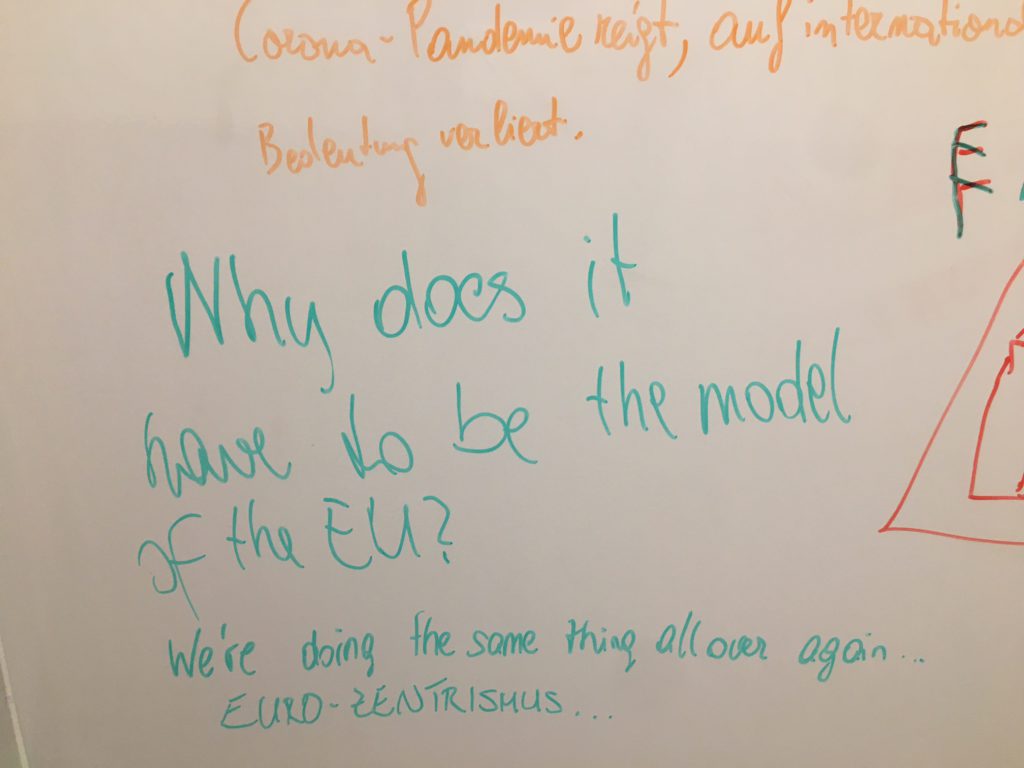 Corona-Pandemie zeigt, auf international
Bedeutung verliert.
E
F
Why does it
have to be the model
of the EU?
We're doing the same thing all over again...
EURO-ZENTRISMUS...